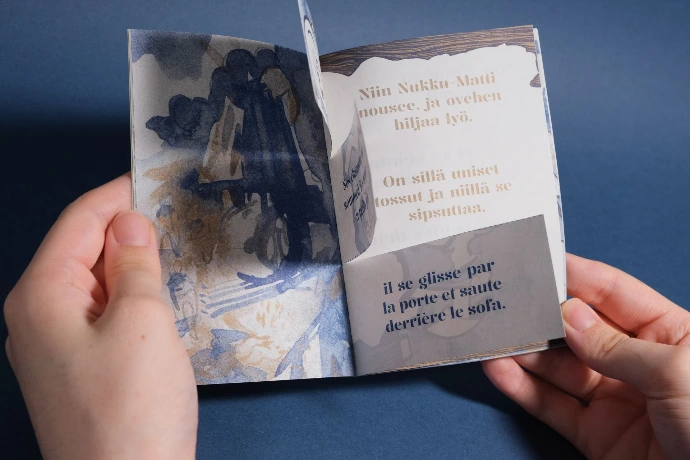 Niin Nukku-Matti
nousee, ja ovehen
hiljaa lyö.
On sillä uniset
tossut ja niillä se
sipsuttaa.
il se glisse par
la porte et saute
derrière le sofa.